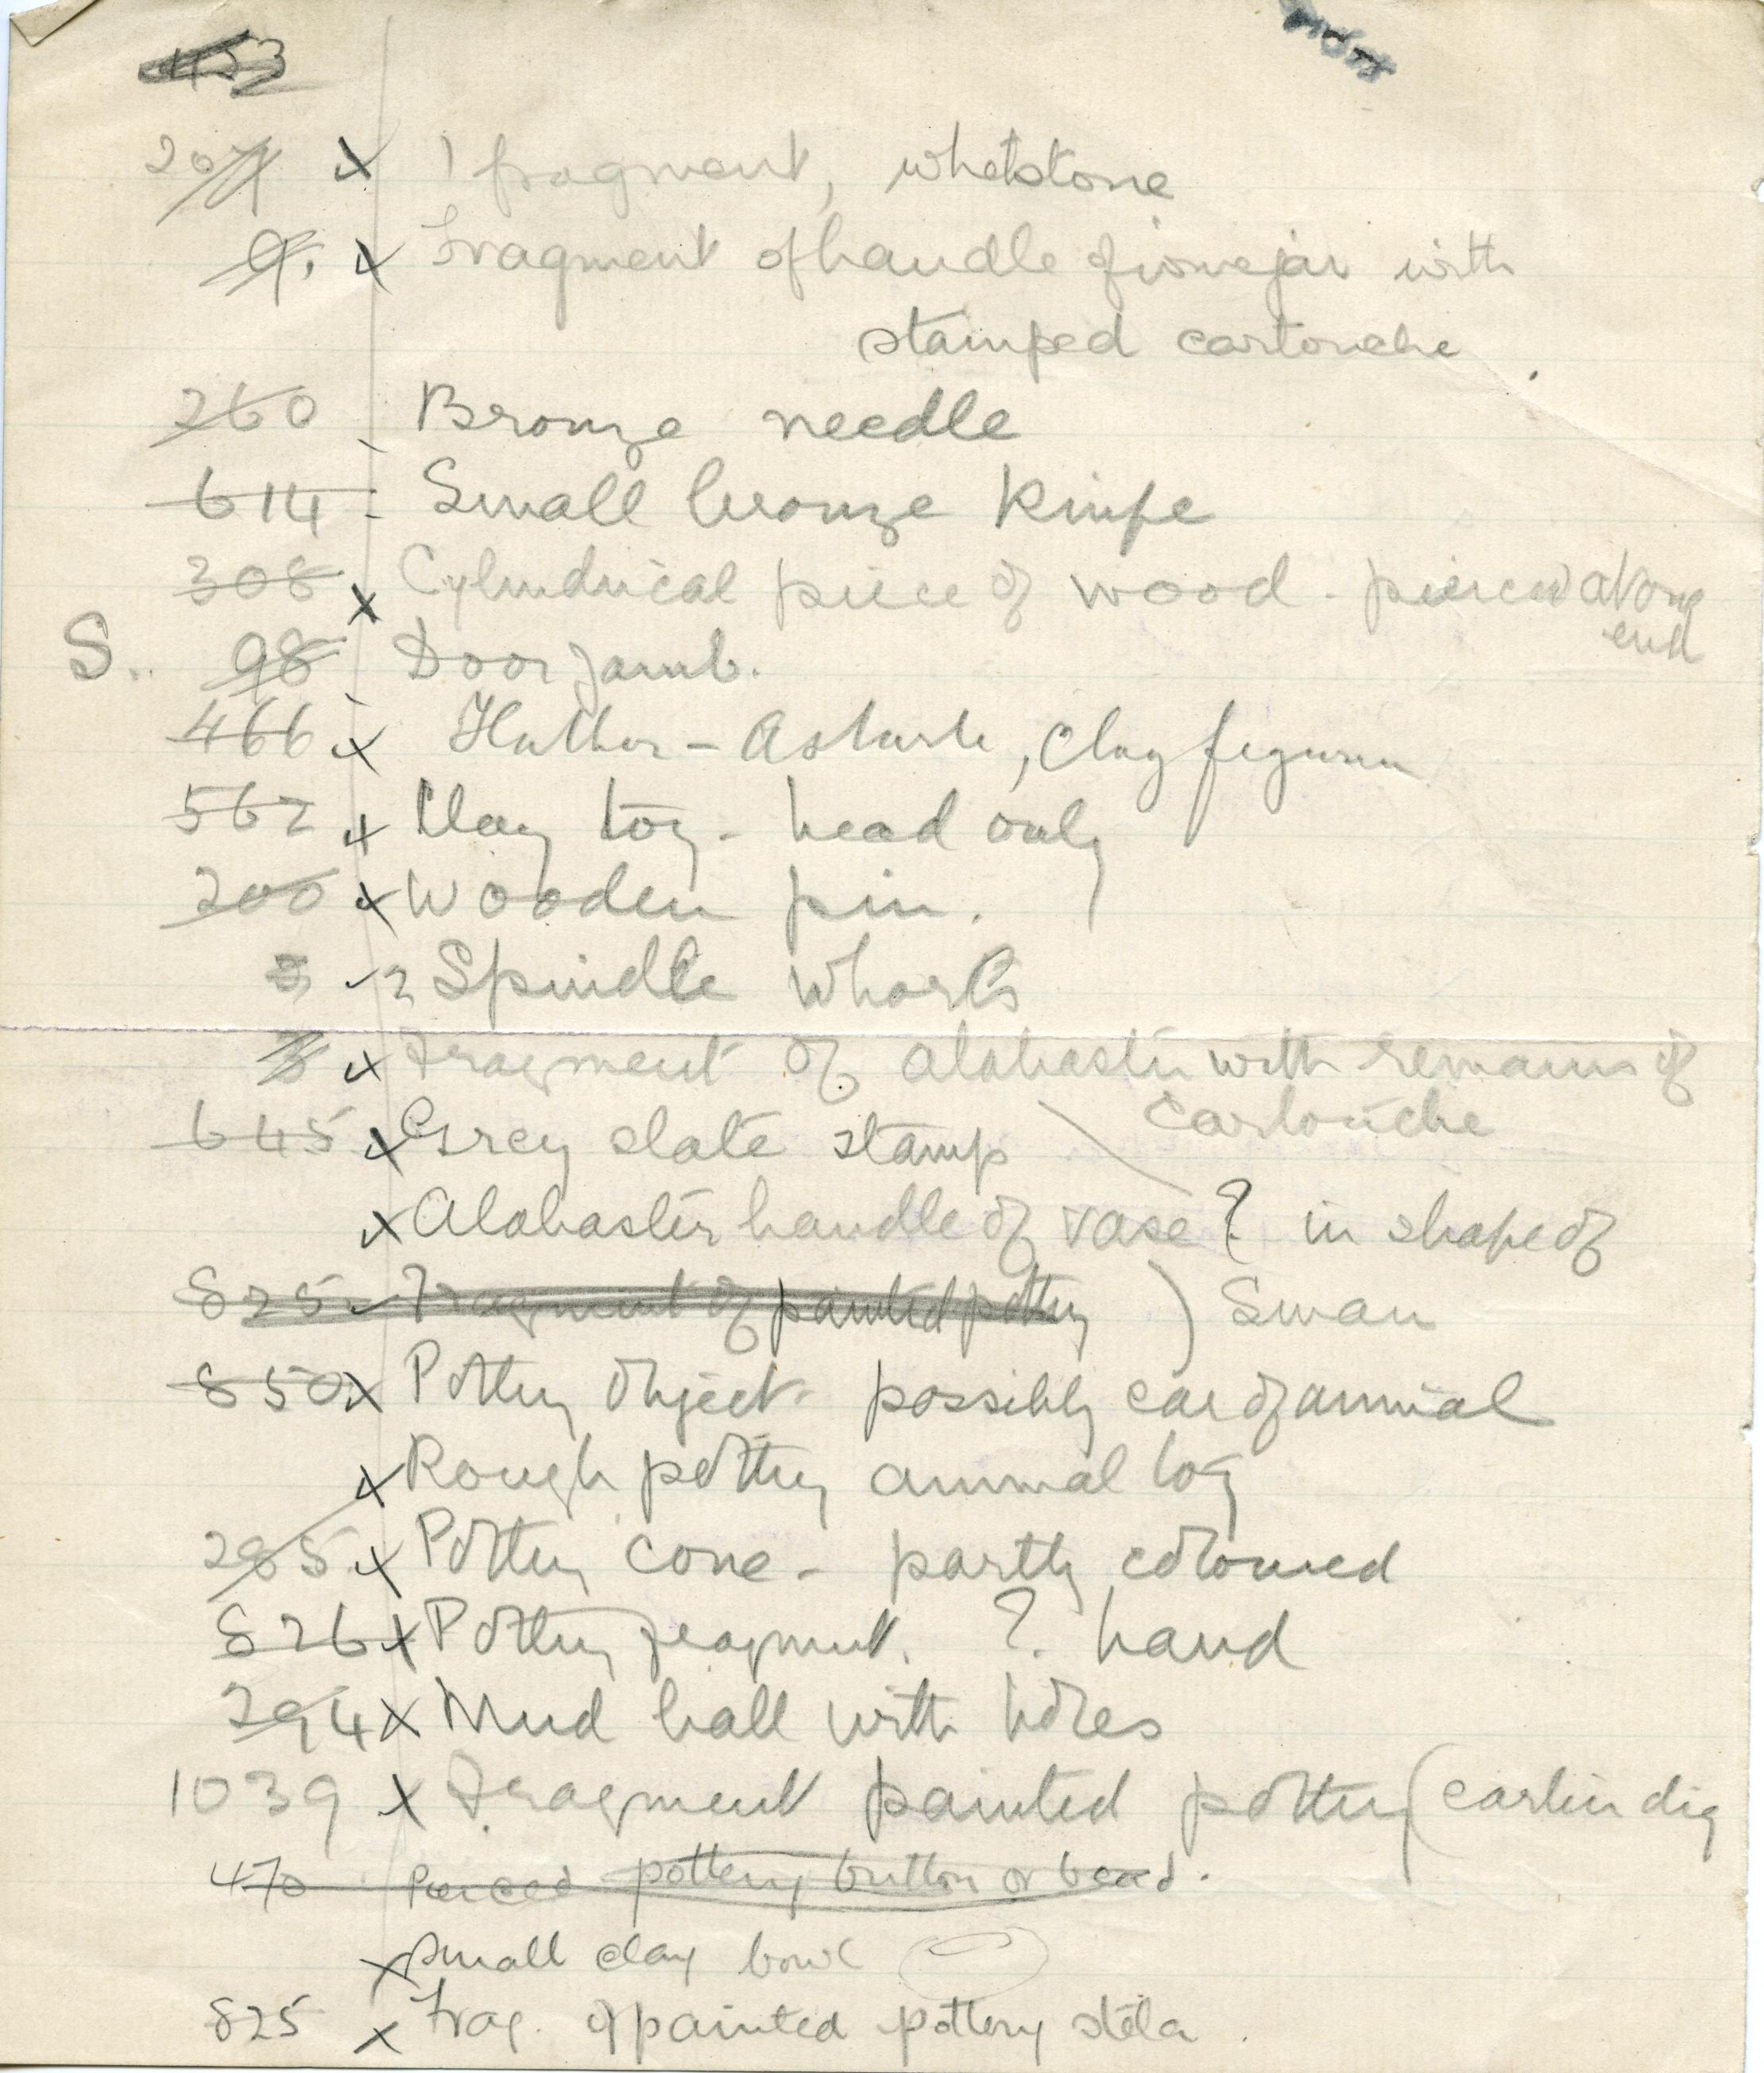 453
207 x 1 fragment, whetstone
9. x Fragment of handle of wine jar with
stamped cartouche
260 Bronze needle
614 - Small bronze Knife
308 x Cylindrical piece of wood - pierced at one
end
S. 98 Door jamb.
466 x Hathor - Astarte, Clay figurine
562 x Clay toy - head only
200 x Wooden pin.
2 Spindle Whorls
x Fragment of alabaster with remains of
Cartouche
645 x Grey slate stamp
x Alabaster handle of vase ? in shape of
825 Fragment of painted pottery ) Swan
850 x Pottery object - possibly ear of animal
x Rough pottery animal toy
285 x Pottery cone - partly coloured
826 x Pottery fragment. ? hand
294 x Mud ball with holes
1039 x Fragment painted pottery (earlier dig
470 Pierced pottery button or bead.
x Small clay bowl
825 x Frag. of painted pottery stela.